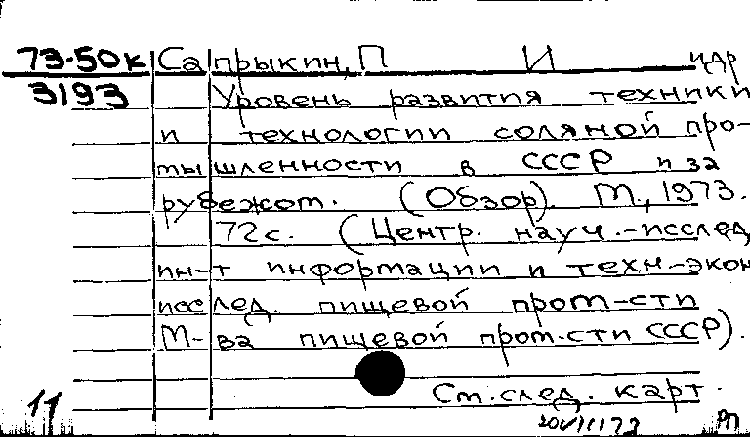 73-50к Сапрыкин, П И идр
3193 Уровень развития техники
и технологии соляной про-
мышленности в СССР и за
рубежом. (Обзор). М., 1973.
72с. (Центр. науч.-исслед.
ин-т информации и техн.-экон
исслед. пищевой пром-сти
М-ва пищевой пром-сти СССР).
См. след. карт.
11